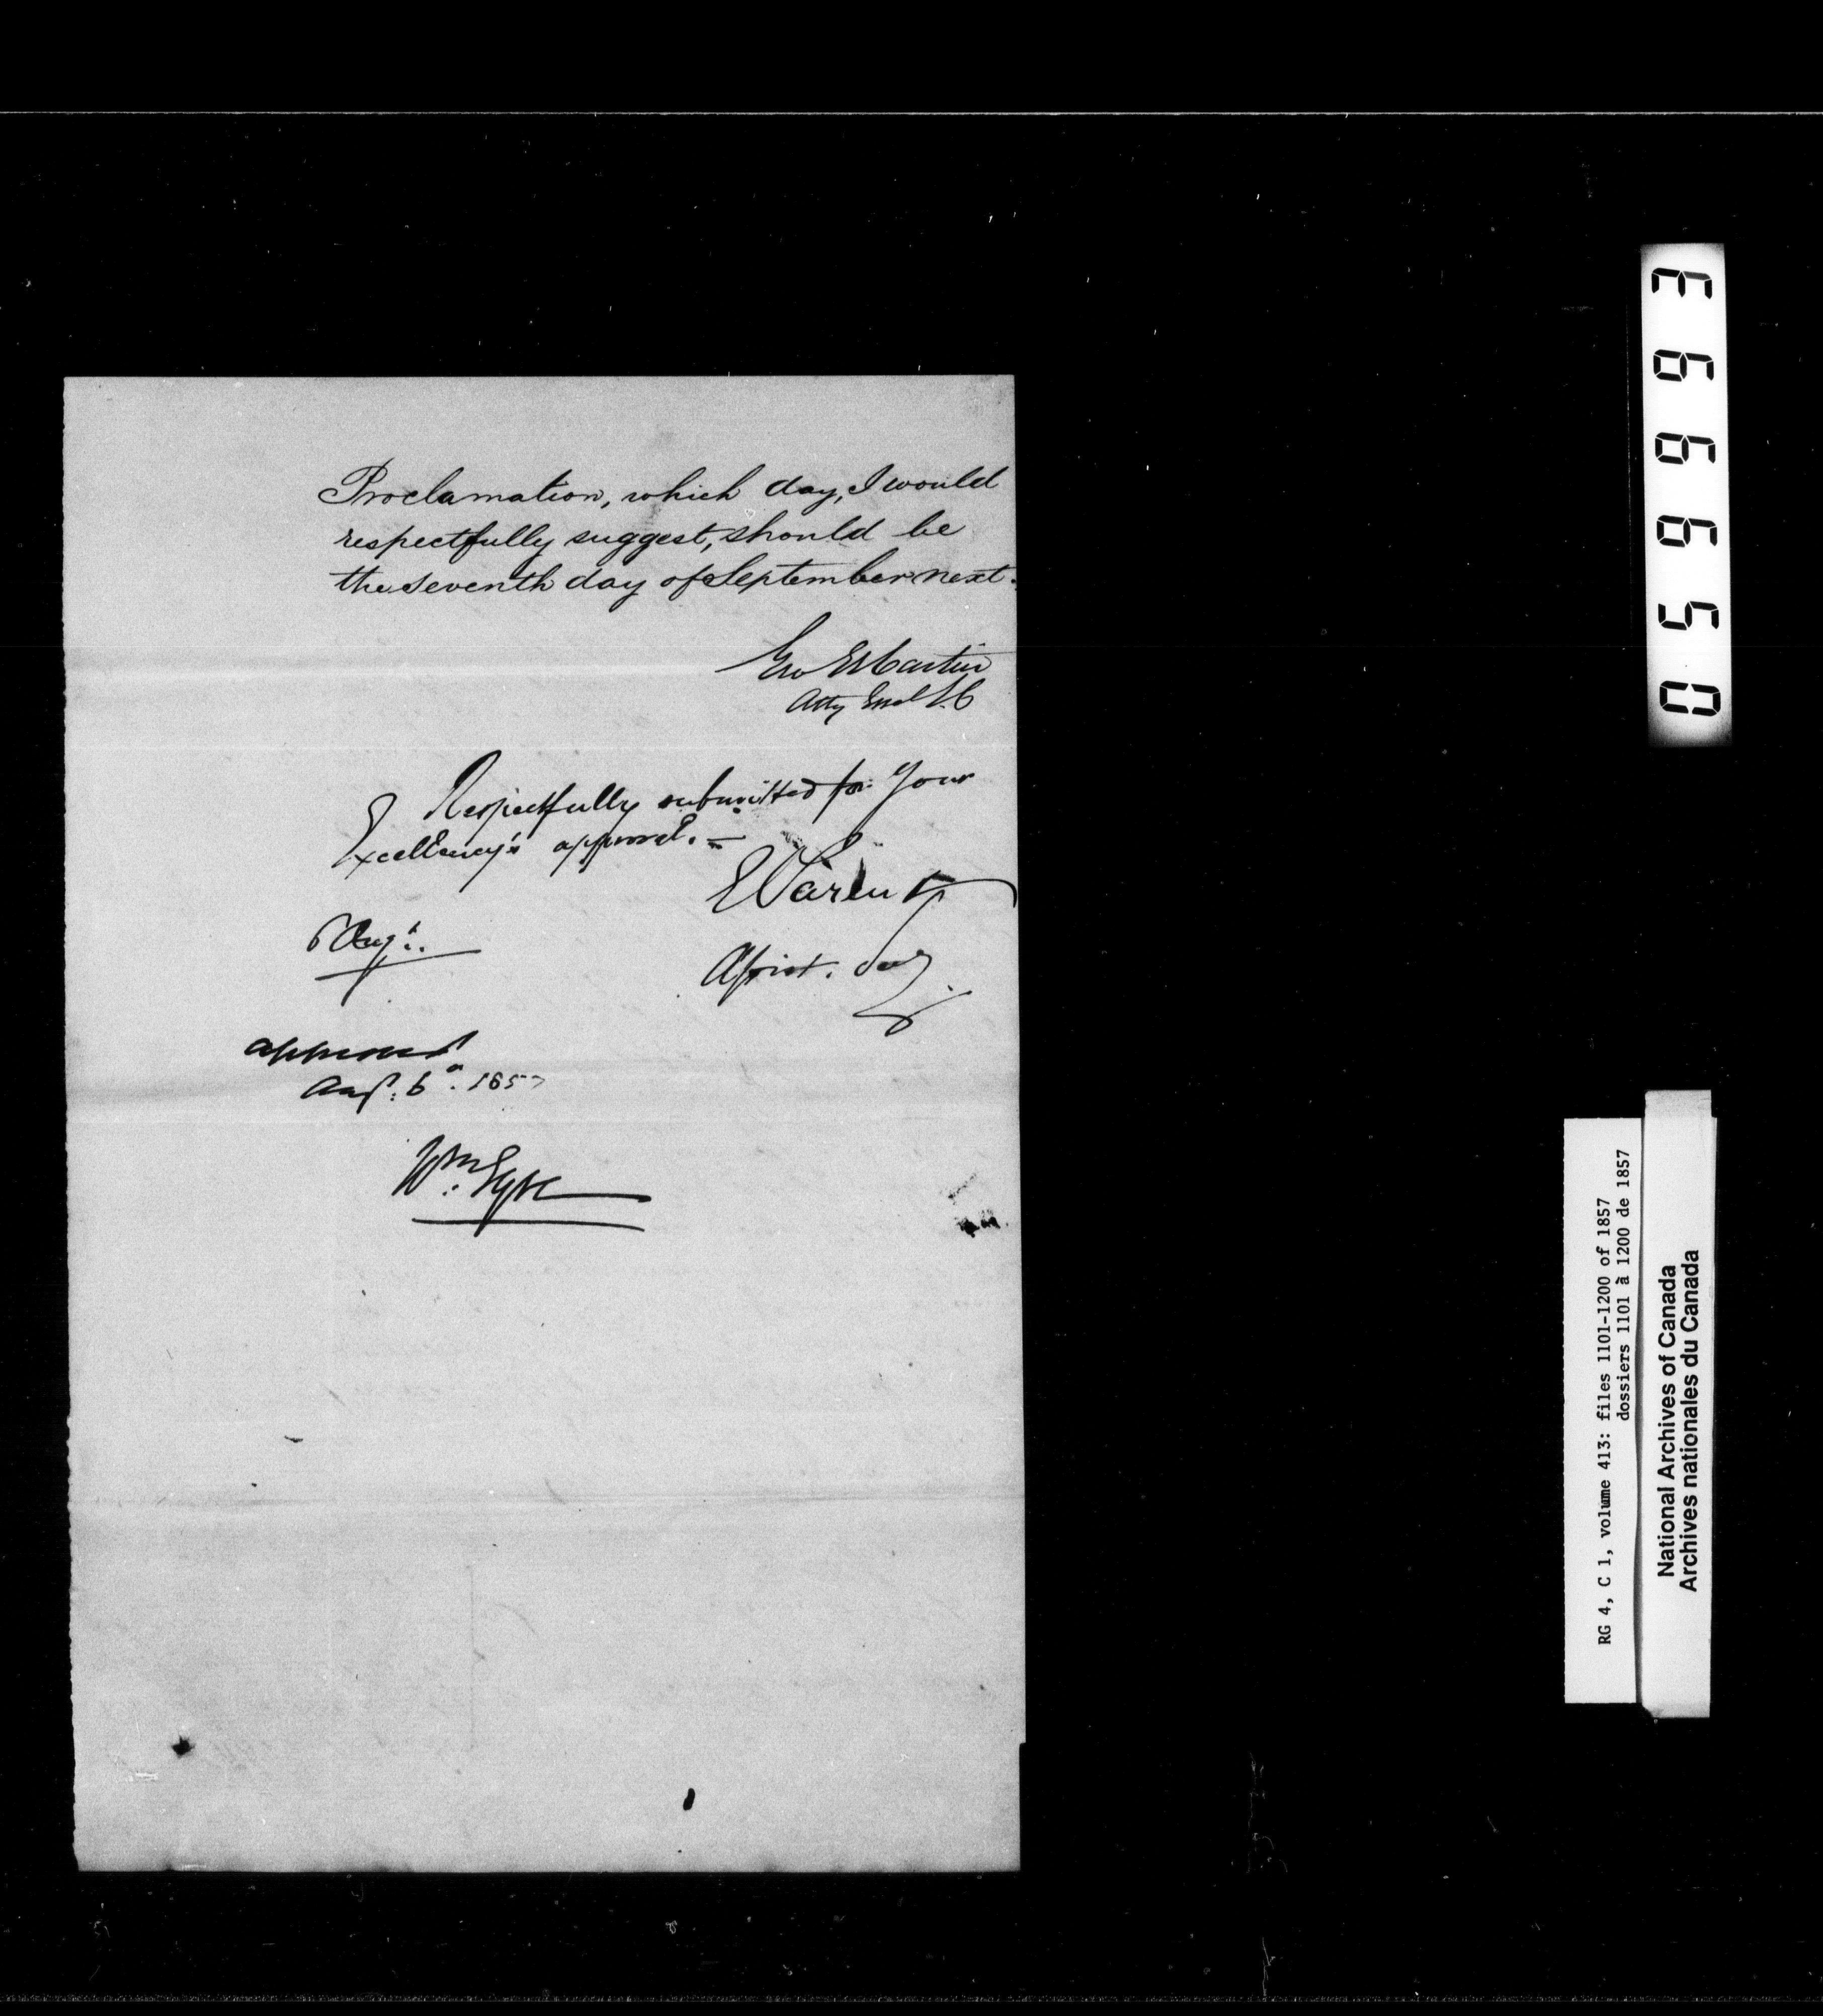 Proclamation, which day, I would
respectfully suggest, should be
the seventh day of September next.
Geo E Cartier
Atty Genl L.C
Respectfully submitted for Your
Excellency's approval. =
E Parent
Assist. Secy.
6 Augt.
approved
Aug: 6th. 1857
Wm. Eyre
E 6 6 6 5 0
RG 4, C 1, volume 413: files 1101-1200 of 1857
dossiers 1101 à 1200 de 1857
National Archives of Canada
Archives nationales du Canada